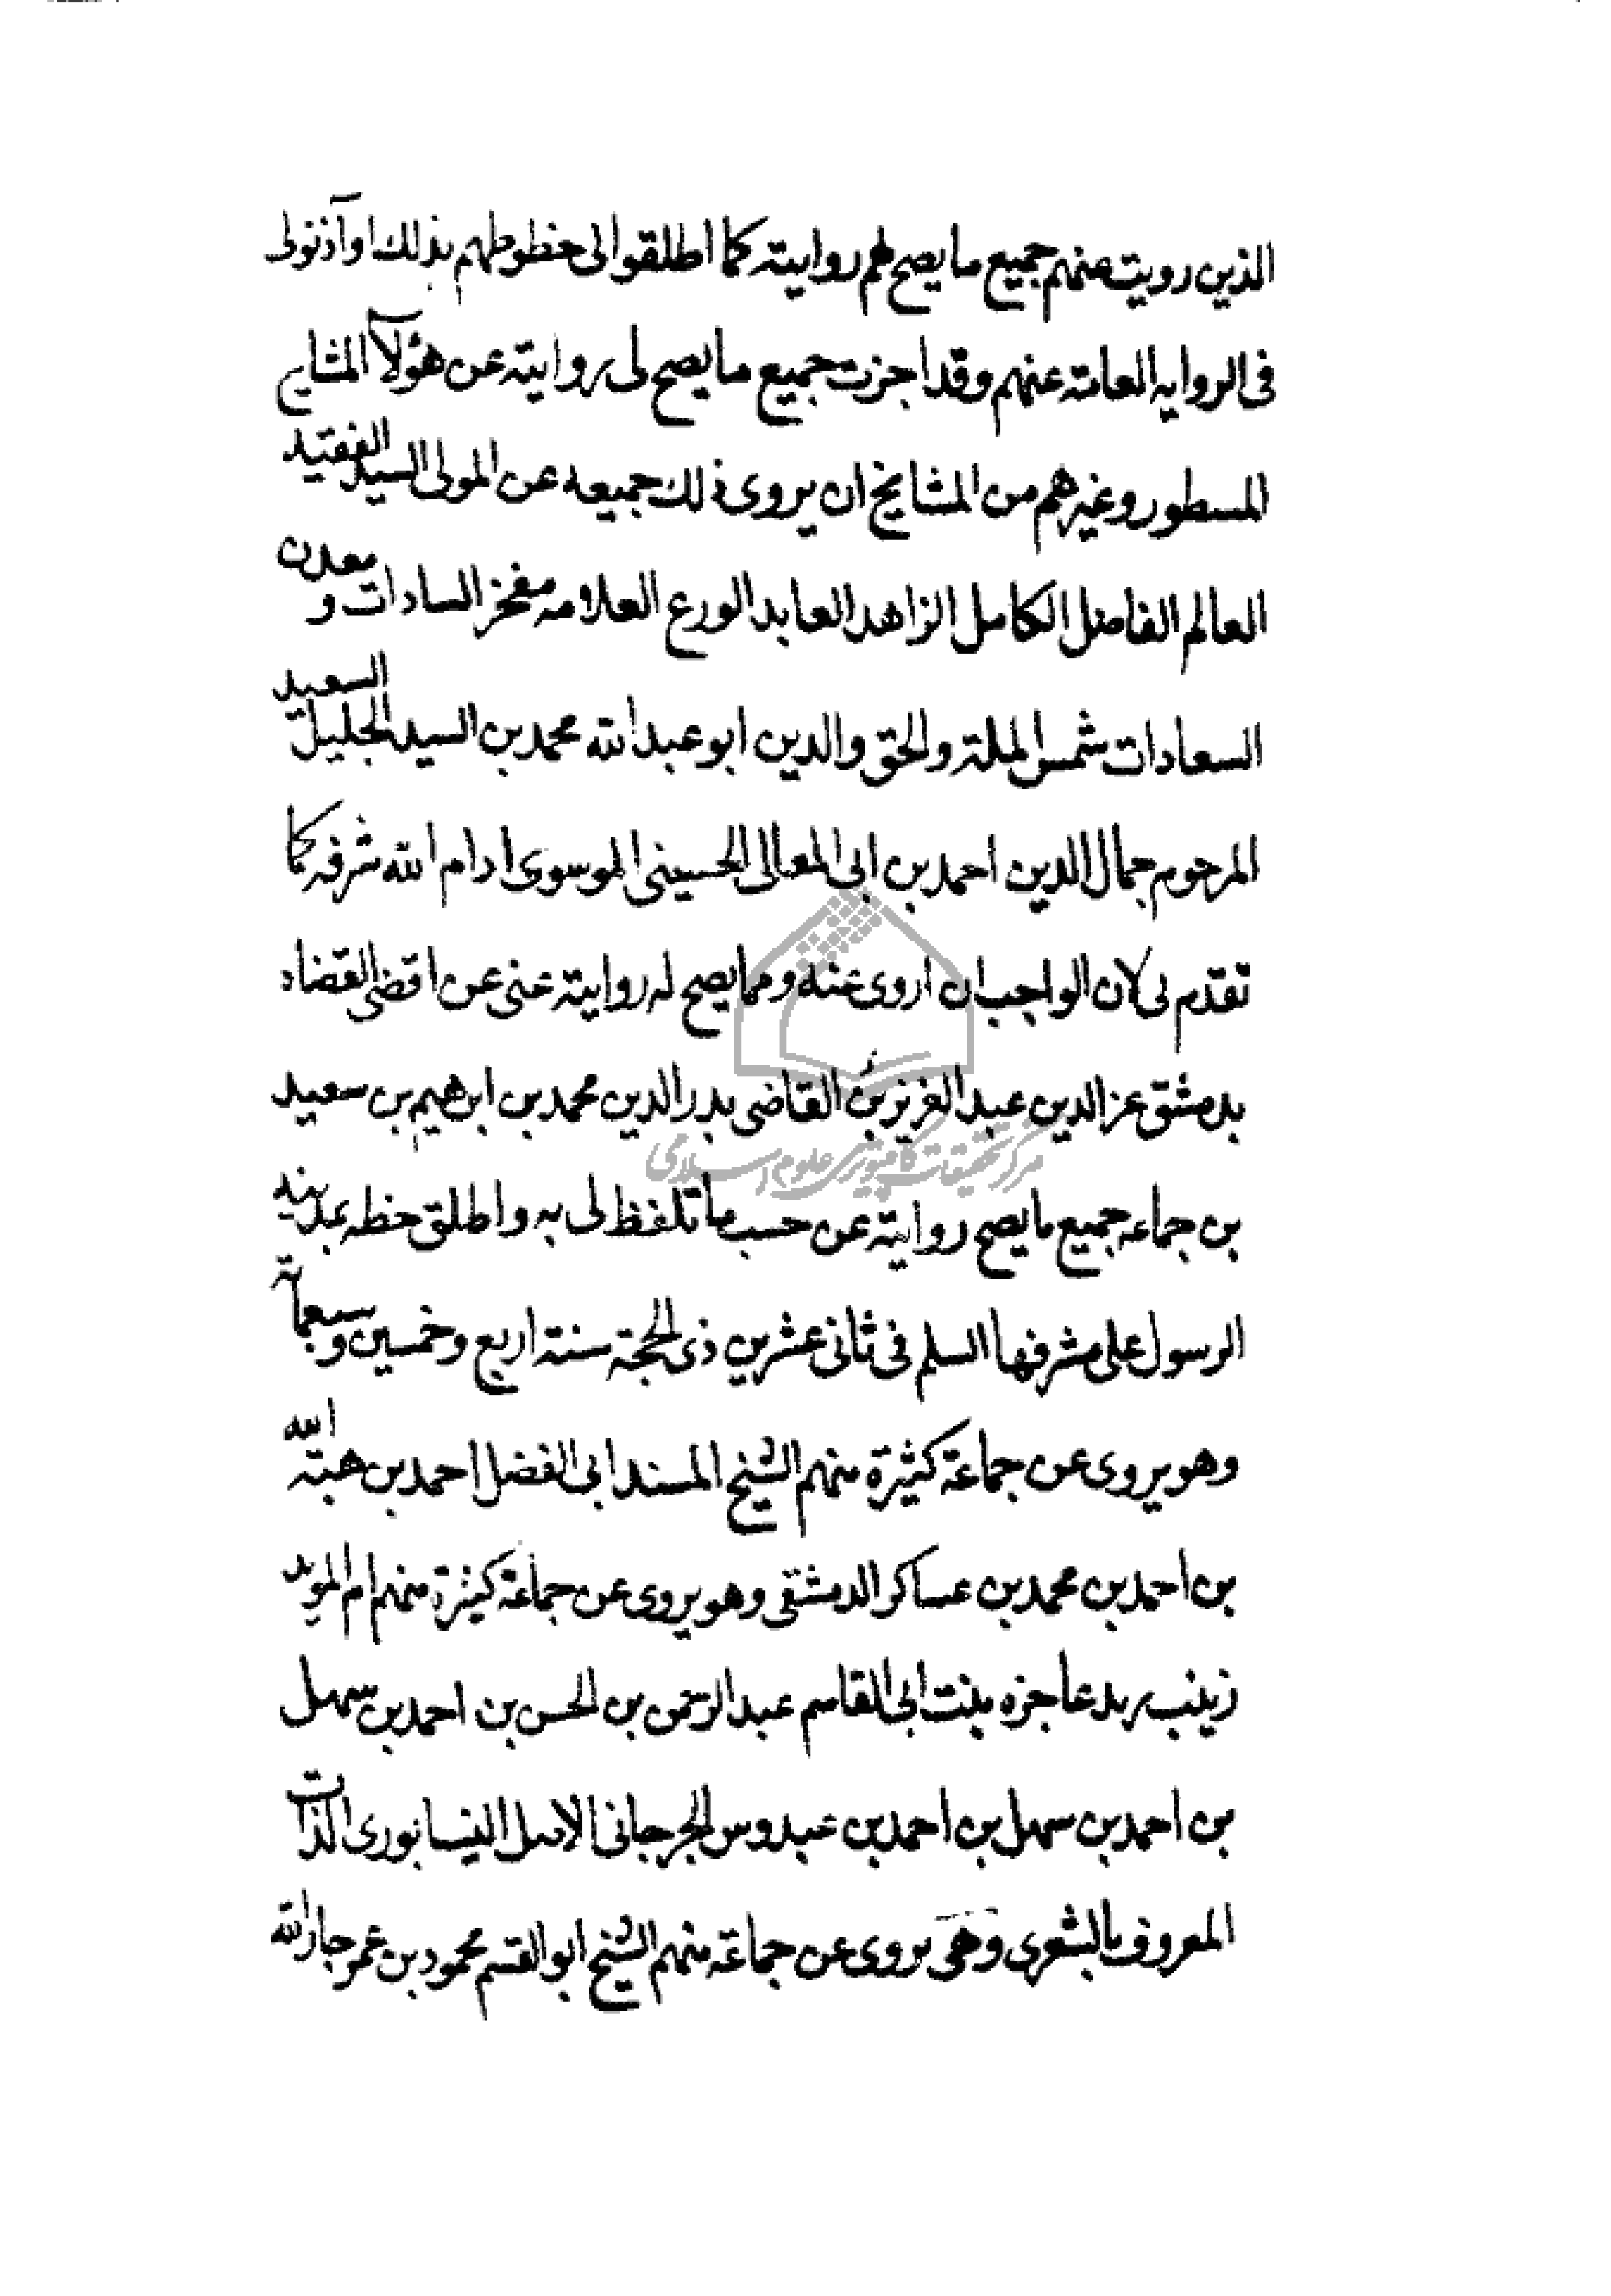 الذين رويت عنهم جميع ما يصح لهم روايته كما اطلقوا لى خطوطهم بذلك وآذنولى
فى الروايه العامة عنهم وقد اجزت جميع ما يصح لى روايته عن هؤلآ المشايخ
المسطور وغيرهم من المشايخ ان يروى ذلك جميعه عن المولى السيد الفقيد
العالم الفاضل الكامل الزاهد العابد الورع العلامه مفخر السادات و معدن
السعادات شمس الملة والحق والدين ابو عبد الله محمد بن السيد الجليل السعيد
المرحوم جمال الدين احمد بن ابى المعالى الحسينى الموسوى ادام الله شرفه كما
تقدم لى لان الواجب ان اروى عنه ومما يصح له روايته عنى عن اقضى القضاه
بدمشق عز الدين عبد العزيز بن القاضى بدر الدين محمد بن ابرهيم بن سعيد
بن جماعه جميع ما يصح روايته عن حسب ما تلفظ لى به واطلق خطه بمدينة
الرسول على مشرفها السلم فى ثانى عشرين ذى الحجة سنة اربع وخمسين وسبعمائة
وهو يروى عن جماعة كثيرة منهم الشيخ المسند ابى الفضل احمد بن هبة الله
بن احمد بن محمد بن عساكر الدمشقى وهو يروى عن جماعة كثيرة منهم ام المويد
زينب بنت ابى القاسم عبد الرحمن بن الحسن بن احمد بن سهل
بن احمد بن سهل بن احمد بن عبدوس الجرجانى الاصل النيسابورى الذات
المعروف بالشعرى وهى يروى عن جماعة منهم الشيخ ابو القسم محمود بن عمر جار الله
مركز تحقيقات كامپيوتري علوم اسلامي